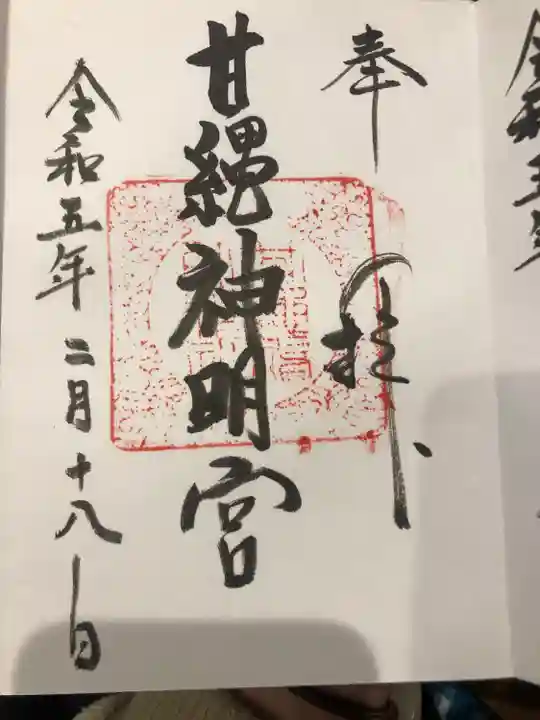 令和五年
奉拝
甘縄神明宮
令和五年二月十八日